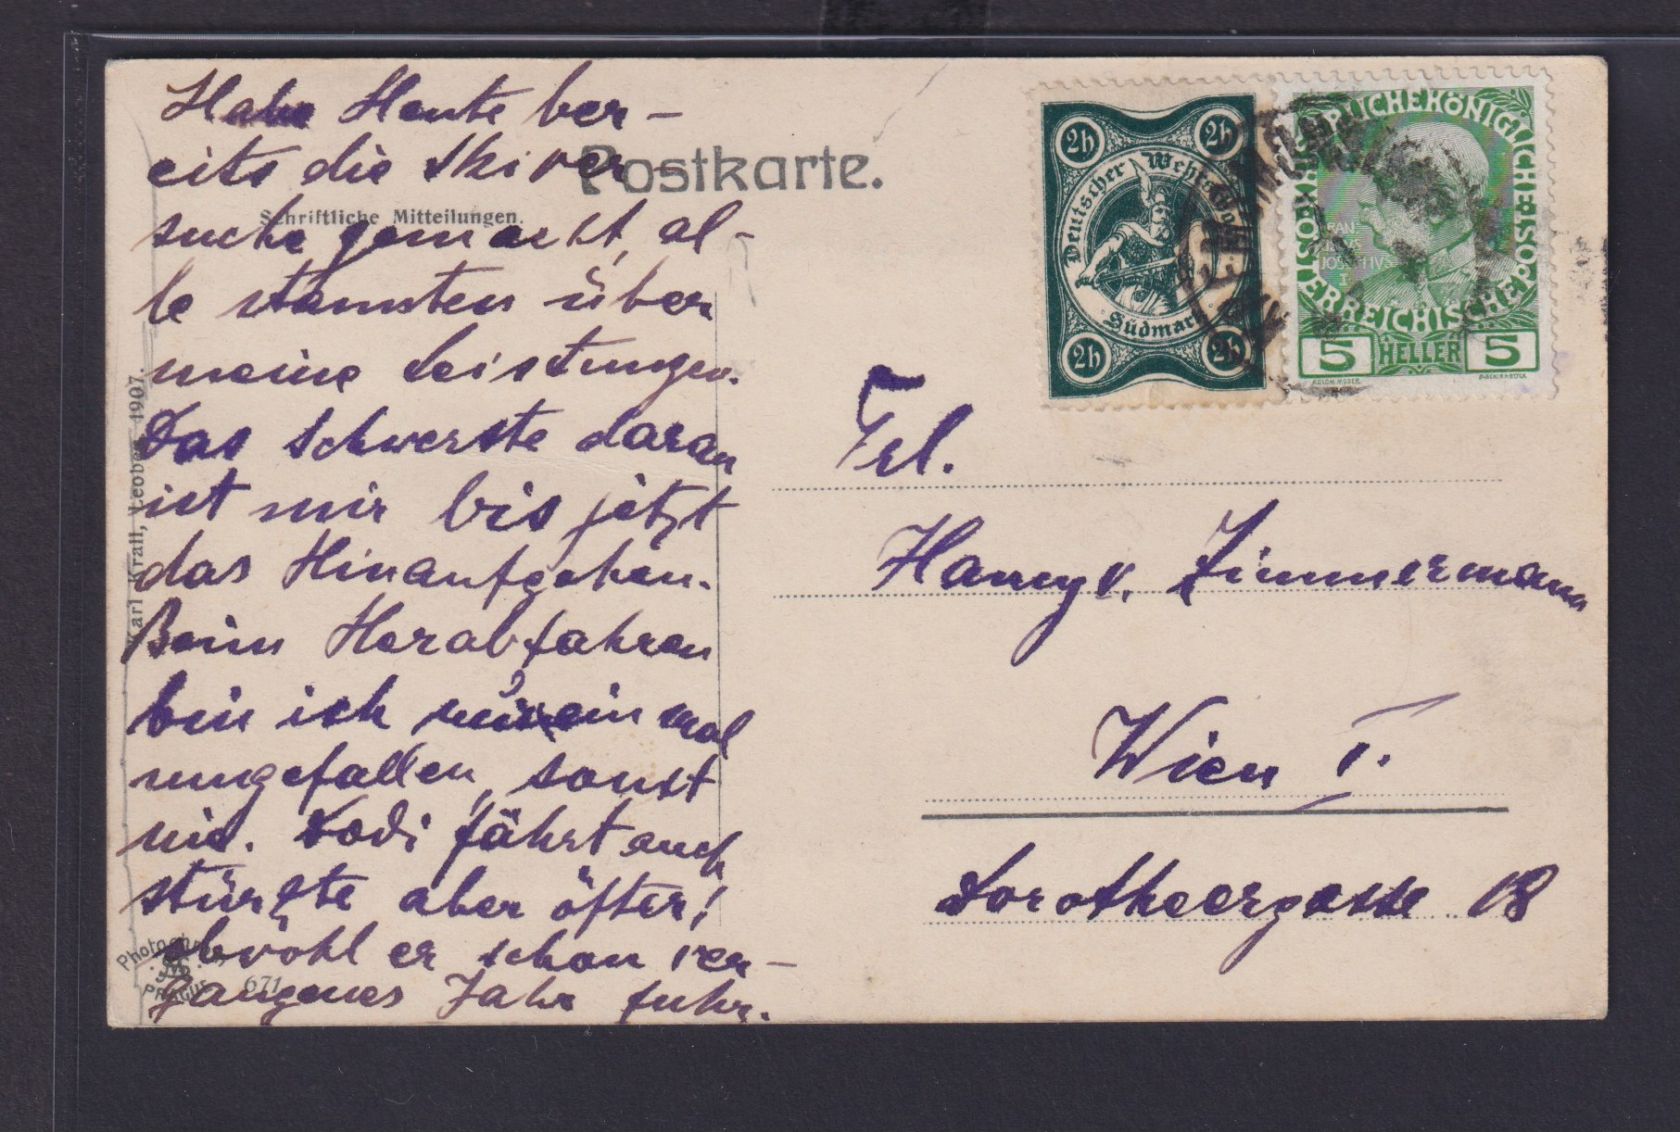 Habe Heute ber-
eits die Skiver-
suche gemacht, al-
le staunten über
meine Leistungen.
Das Schwerste daran
ist mir bis jetzt
das Hinaufgehen.
Beim Herabfahren
bin ich nur ein mal
umgefallen, sonst
nie. Dodi fährt auch
stürzte aber öfter,
obwohl er schon ver-
gangenes Jahr fuhr.
Postkarte.
Schriftliche Mitteilungen.
Karl Krall, Leoben 1907.
671
2h 2h
Deutscher Wehrschatz
Südmark
2h 2h
KÖNIGLICHE
ÖSTERREICHISCHE
5 HELLER 5
Frl.
Harry v. Zimmermann
Wien I.
Dorotheergasse 18